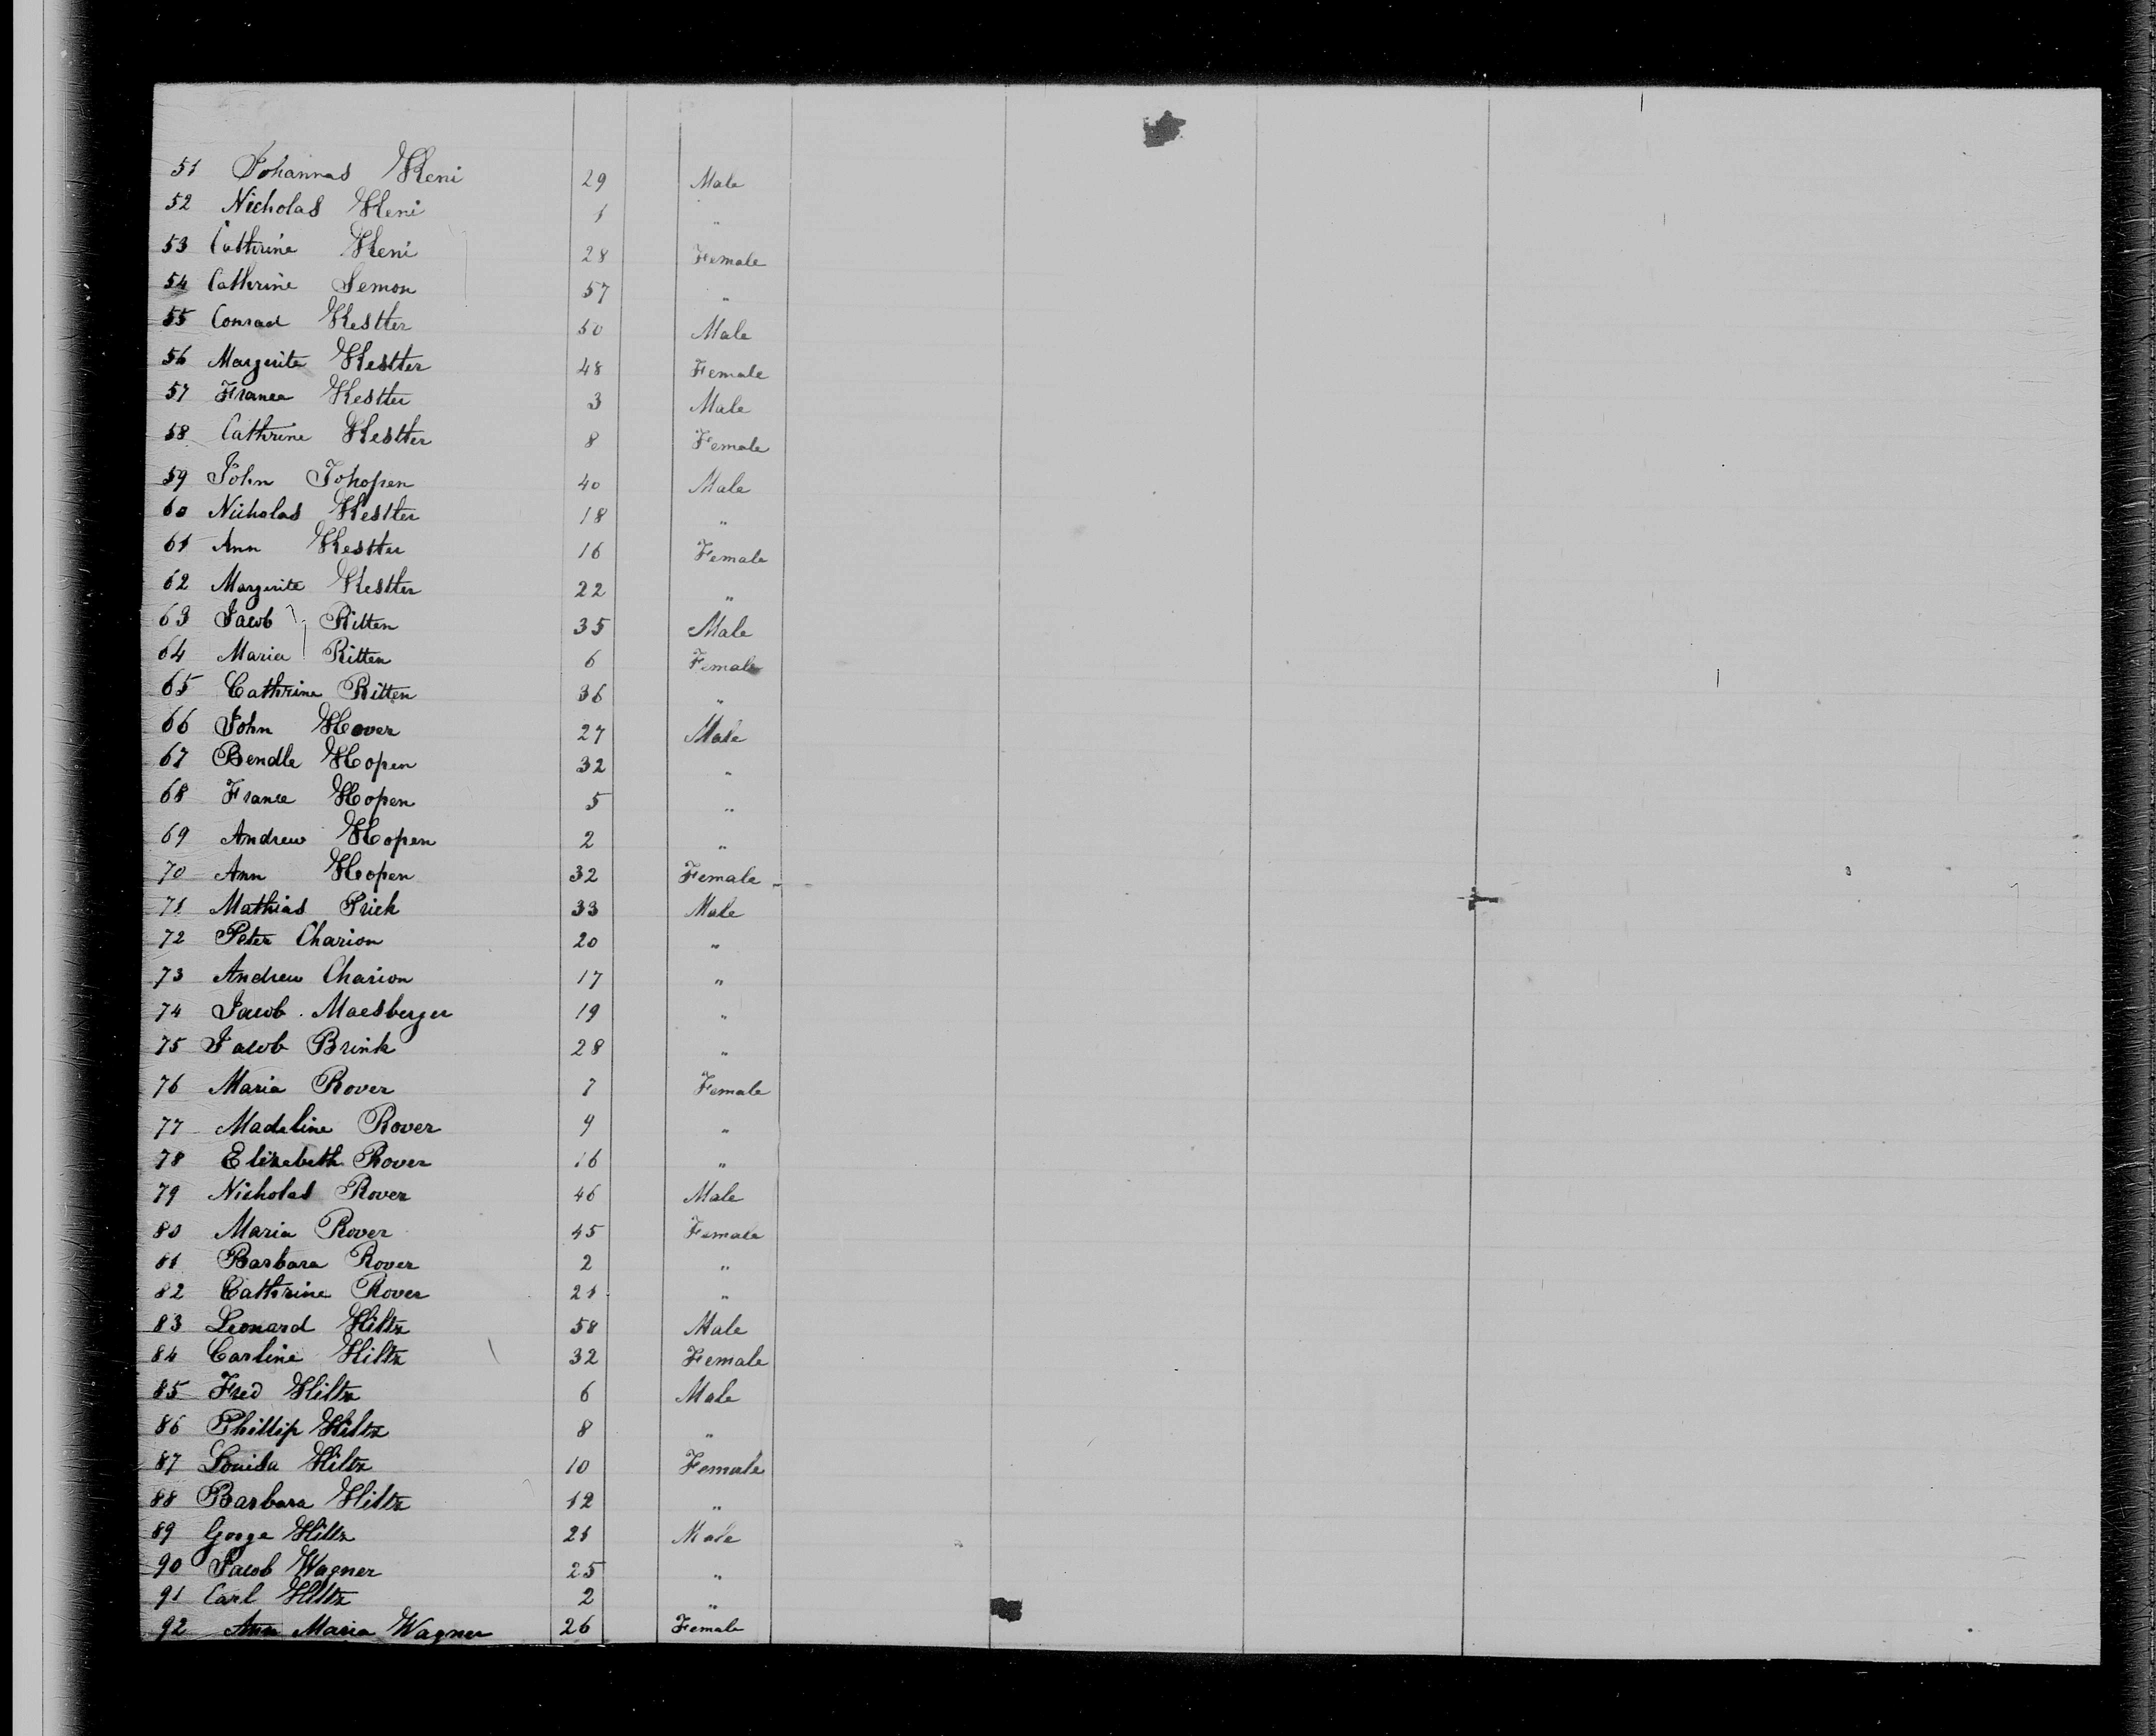 51 Johannas Heni 29 Male
52 Nicholas Heni 1 "
53 Cathrine Heni 28 Female
54 Cathrine Semon 57 "
55 Conrad Hestter 50 Male
56 Margerite Hestter 48 Female
57 France Hestter 3 Male
58 Cathrine Hestter 8 Female
59 John Johopen 40 Male
60 Nicholas Hestter 18 "
61 Ann Hestter 16 Female
62 Margerite Hestter 22 "
63 Jacob Ritten 35 Male
64 Maria Ritten 6 Female
65 Cathrine Ritten 36 "
66 John Hover 27 Male
67 Bendle Hopen 32 "
68 France Hopen 5 "
69 Andrew Hopen 2 "
70 Ann Hopen 32 Female
71 Mathias Prick 33 Male
72 Peter Charion 20 "
73 Andrew Charion 17 "
74 Jacob Maesberger 19 "
75 Jacob Brink 28 "
76 Maria Rover 7 Female
77 Madeline Rover 9 "
78 Elizabeth Rover 16 "
79 Nicholas Rover 46 Male
80 Maria Rover 45 Female
81 Barbara Rover 2 "
82 Cathrine Rover 21 "
83 Leonard Hiltz 58 Male
84 Carline Hiltz 32 Female
85 Fred Hiltz 6 Male
86 Phillip Hiltz 8 "
87 Louisa Hiltz 10 Female
88 Barbara Hiltz 12 "
89 Gorge Hiltz 21 Male
90 Jacob Wagner 25 "
91 Carl Hiltz 2 "
92 Ann Maria Wagner 26 Female